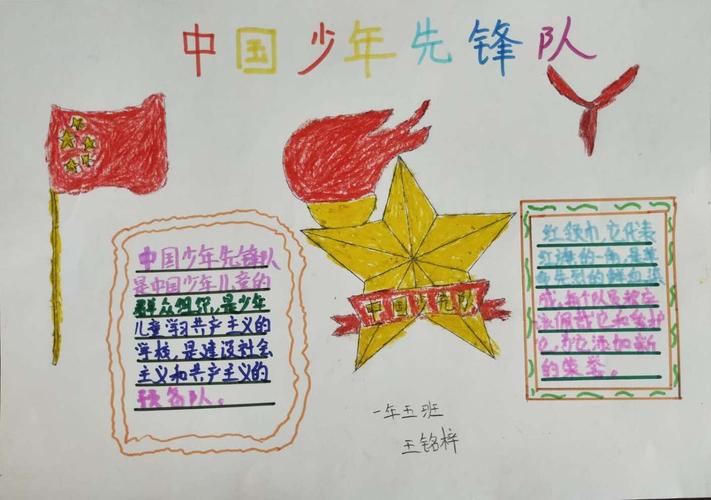 中国少年先锋队
中国少年先锋队
是中国少年儿童的
群众组织,是少年
儿童学习共产主义的
学校,是建设社会
主义和共产主义的
预备队。
中国少先队
红领巾,它代表
红旗的一角,是革
命先烈的鲜血染
成,每个队员都应
该佩戴它和爱护
它,为它添加新
的荣誉。
一年五班
王铭梓